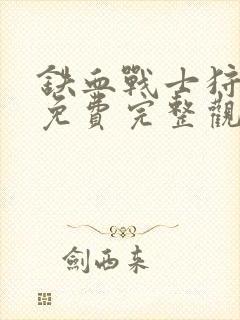 鉄血戰士狩
免費完整觀
劍西來